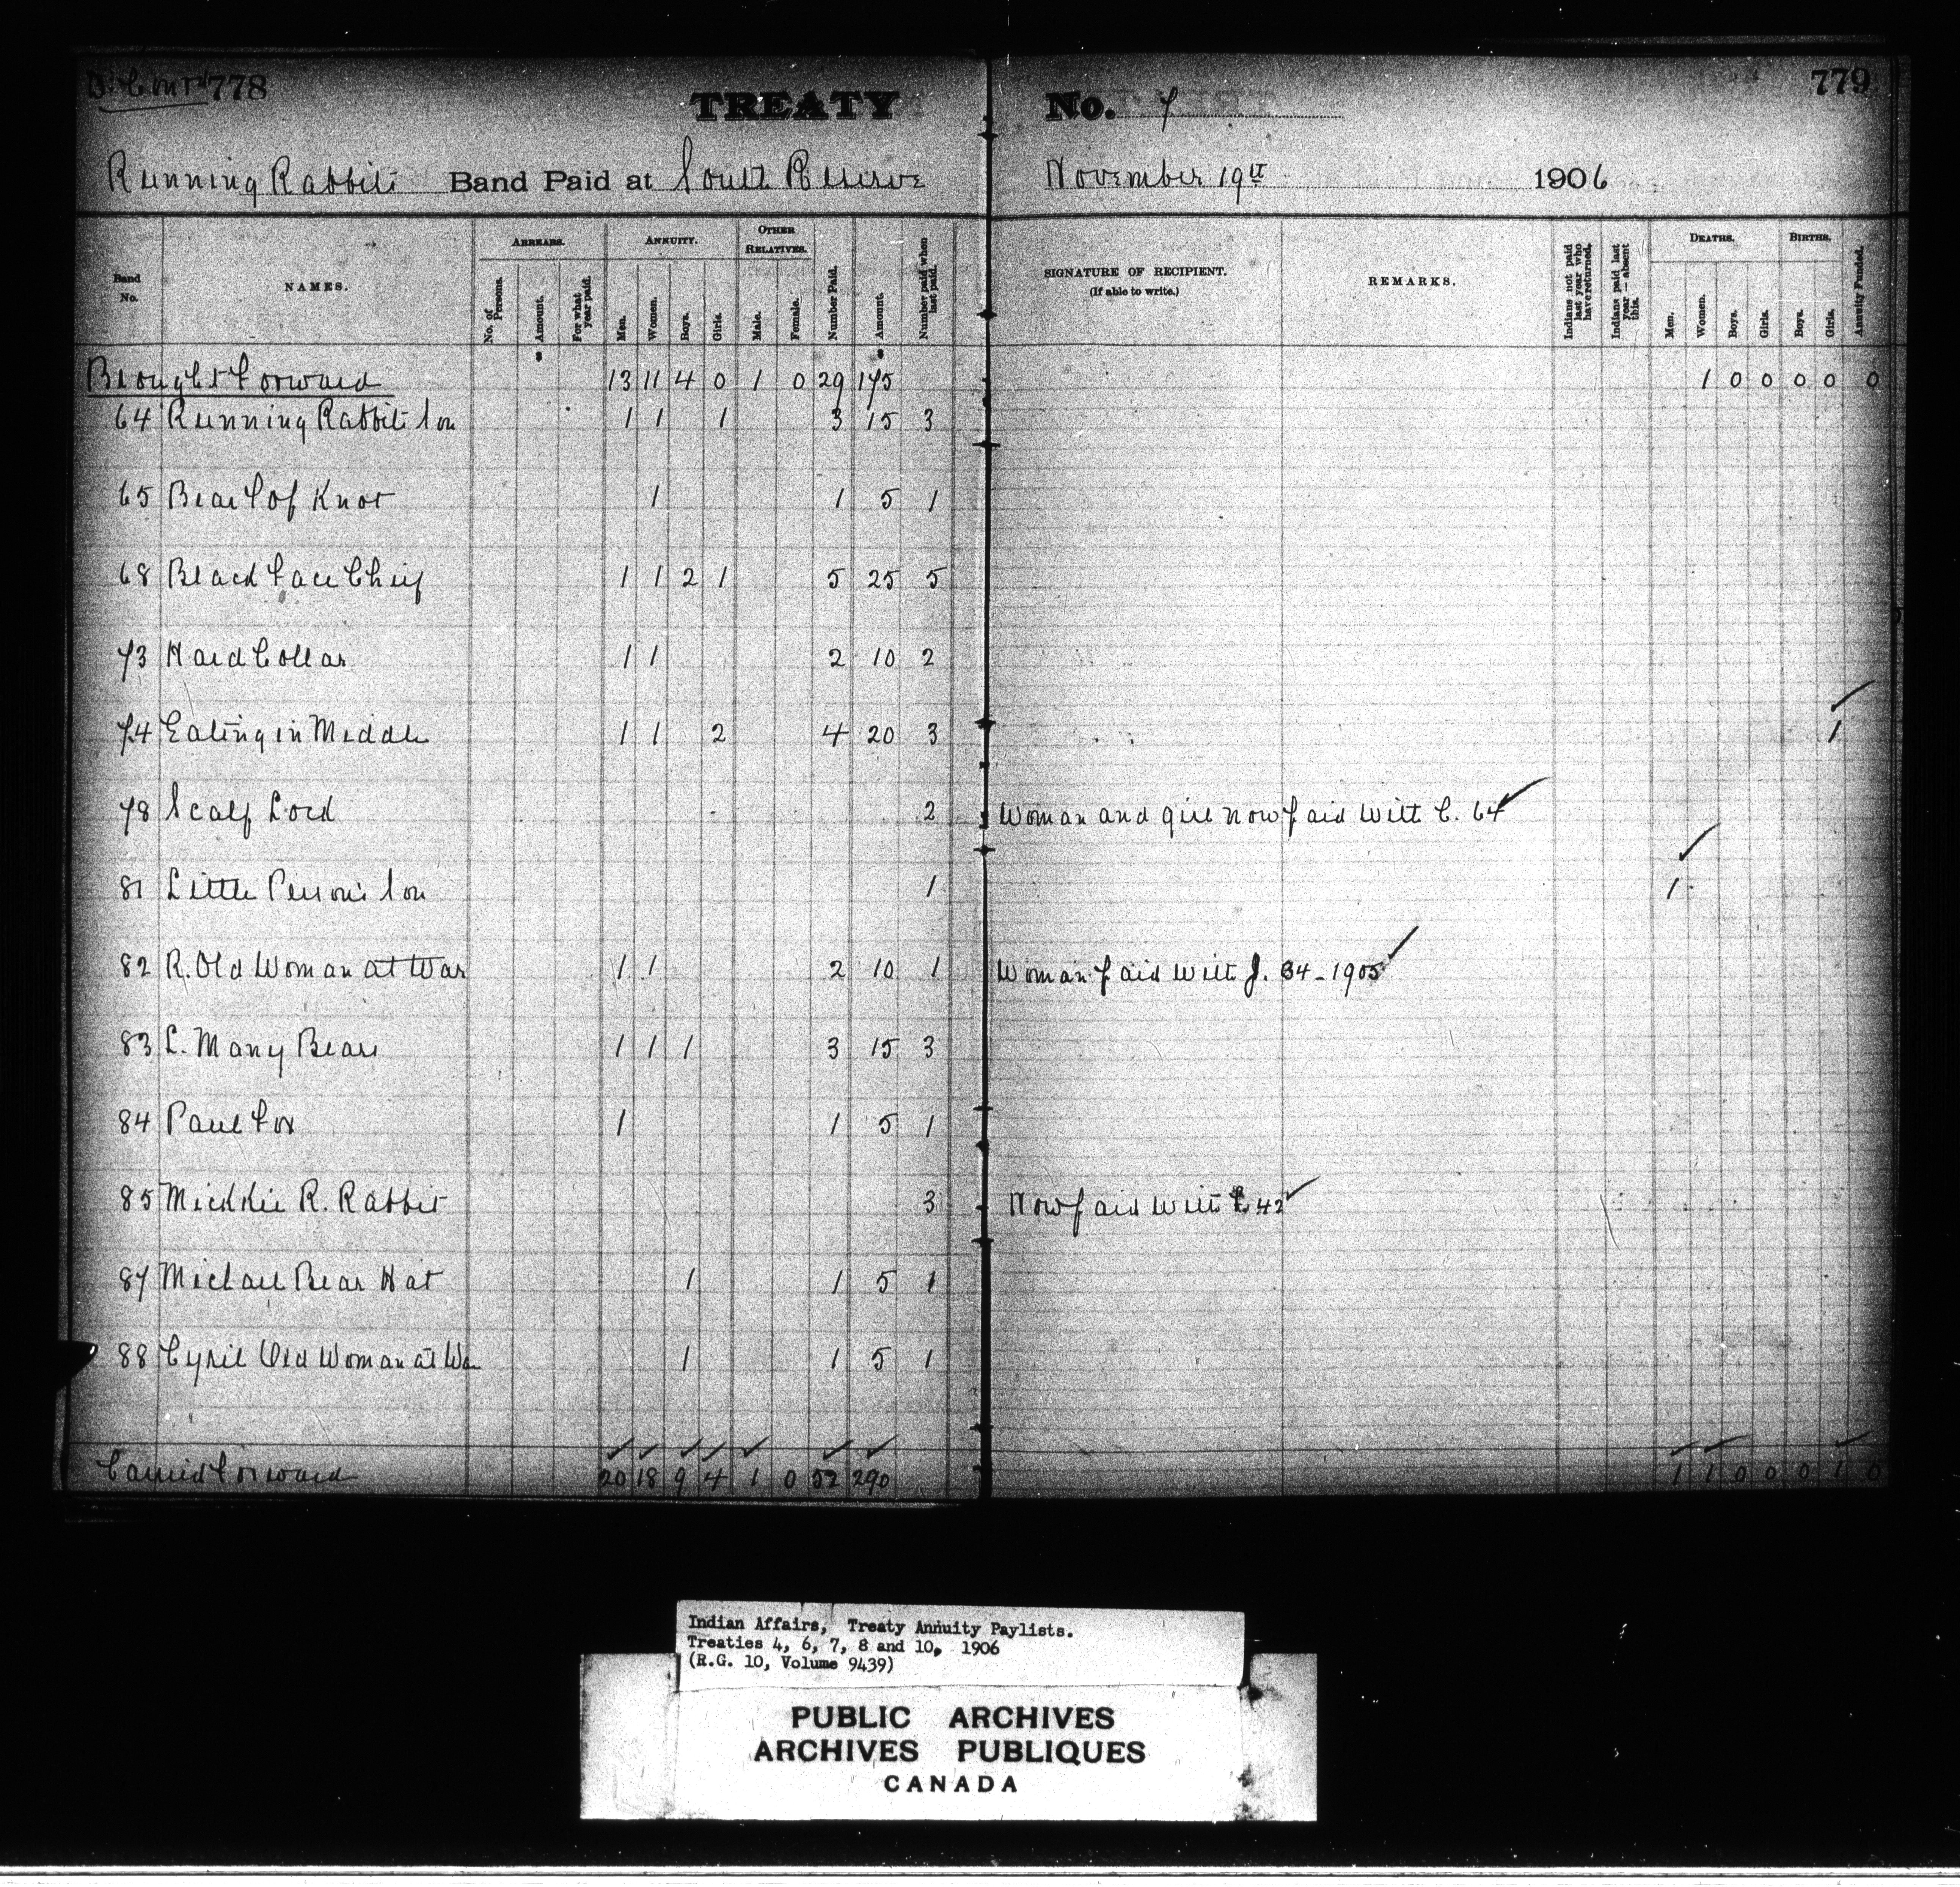 D. Contd 778
TREATY No. 7
779
Running Rabbits Band Paid at South Reserve November 19th 1906
Band No.
NAMES.
ARREARS.
No. of Persons.
Amount.
For what year paid.
ANNUITY.
Men.
Women.
Boys.
Girls.
OTHER RELATIVES.
Male.
Female.
Number Paid.
Amount.
Number paid when last paid.
SIGNATURE OF RECIPIENT.
(If able to write.)
REMARKS.
Indians not paid last year who have returned.
Indians paid last year—absent this.
DEATHS.
Men.
Women.
Boys.
Girls.
BIRTHS.
Boys.
Girls.
Annuity Funded.
Brought Forward 13 11 4 0 1 0 29 175 1 0 0 0 0 0
64 Running Rabbits Son 1 1 1 3 15 3
65 Bear Top Knot 1 1 5 1
68 Black Face Chief 1 1 2 1 5 25 5
73 Hard Collar 1 1 2 10 2
74 Eating in Middle 1 1 2 4 20 3 1
78 Scalp Lock 2 Woman and girl now paid with C. 64
81 Little Person's Son 1 1
82 R. Old Woman at War 1 1 2 10 1 Woman paid with J. 34 - 1905
83 L. Many Bears 1 1 1 3 15 3
84 Paul Fox 1 1 5 1
85 Mickkie R. Rabbit 3 Now paid with 42
87 Michael Bear Hat 1 1 5 1
88 Cyril Old Woman at War 1 1 5 1
Carried Forward 20 18 9 4 1 0 52 290 1 1 0 0 0 1 0
Indian Affairs, Treaty Annuity Paylists.
Treaties 4, 6, 7, 8 and 10, 1906
(R.G. 10, Volume 9439)
PUBLIC ARCHIVES
ARCHIVES PUBLIQUES
CANADA